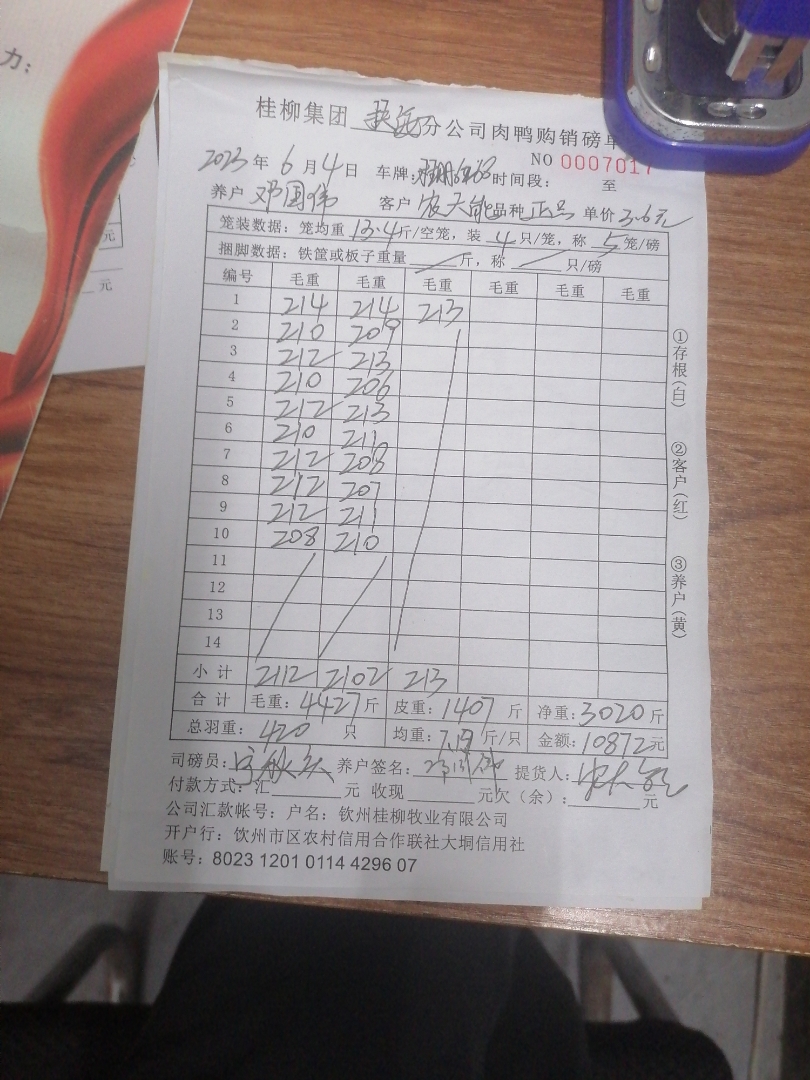 力：
元
元
桂柳集团 分公司肉鸭购销磅单
NO 0007017
2023年6月4日 车牌： 时间段： 至
养户 邓国伟 客户 农天能 品种 正品 单价 3.6元
笼装数据：笼均重 13.4 斤/空笼，装 4 只/笼，称 5 笼/磅
捆脚数据：铁筐或板子重量 斤，称 只/磅
编号 毛重 毛重 毛重 毛重 毛重 毛重
1 214 214 213
2 210 209
3 212 213
4 210 206
5 212 213
6 210 211
7 212 208
8 212 207
9 212 211
10 208 210
11
12
13
14
小计 2112 2102 213
合计 毛重：4427斤 皮重：1407斤 净重：3020斤
总羽重：420 只 均重：7.19斤/只 金额：10872元
司磅员： 养户签名： 提货人：
付款方式：汇 元 收现 元欠（余）： 元
公司汇款帐号：户名：钦州桂柳牧业有限公司
开户行：钦州市区农村信用合作联社大垌信用社
账号：8023 1201 0114 4296 07
①存根（白）
②客户（红）
③养户（黄）